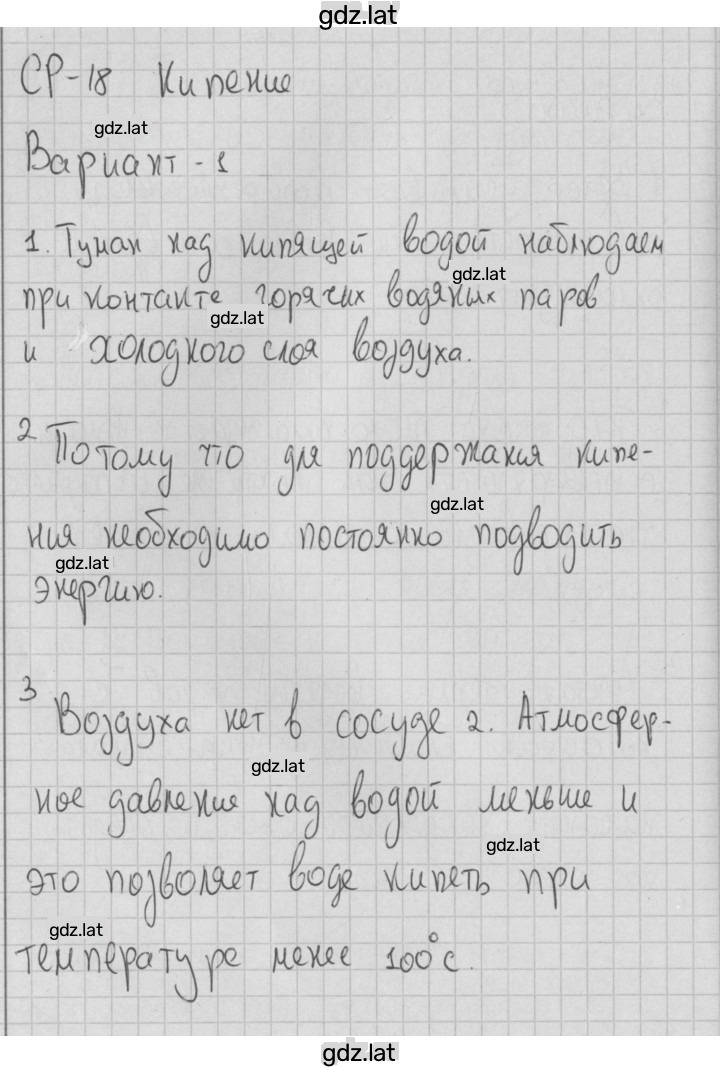 gdz.lat
СР-18 Кипение
gdz.lat
Вариант - 1
1. Туман над кипящей водой наблюдаем
gdz.lat
при контакте горячих водяных паров
gdz.lat
и холодного слоя воздуха.
2 Потому что для поддержания кипе-
gdz.lat
ния необходимо постоянно подводить
gdz.lat
энергию.
3 Воздуха нет в сосуде 2. Атмосфер-
gdz.lat
ное давление над водой меньше и
gdz.lat
это позволяет воде кипеть при
gdz.lat
температуре менее 100°С.
gdz.lat